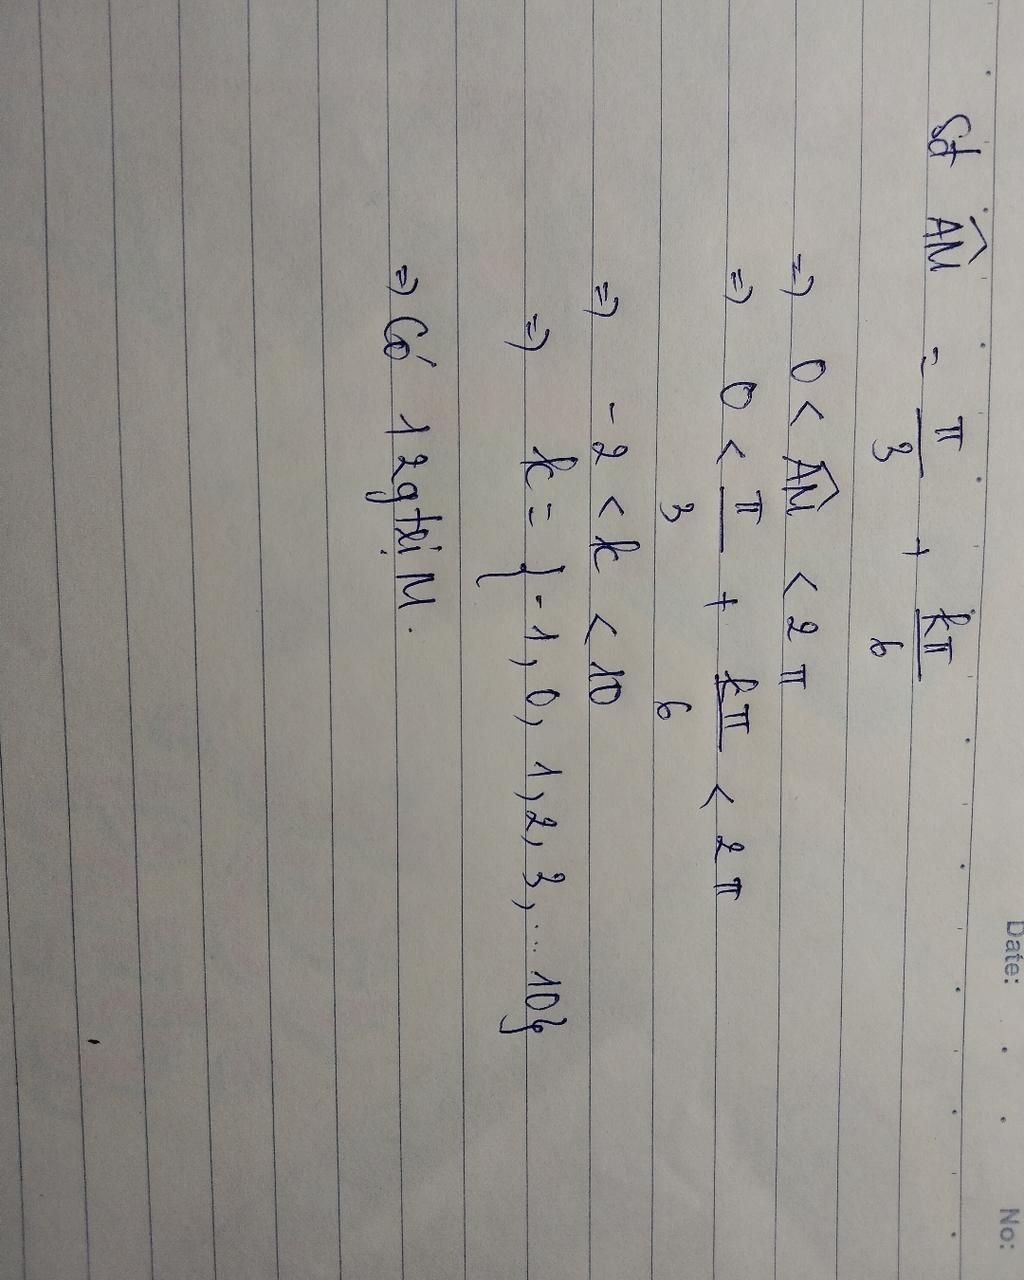 Date:
No:
Sđ AM̂ = π/3 + kπ/6
=> 0 < AM̂ < 2π
=> 0 < π/3 + kπ/6 < 2π
=> -2 < k < 10
=> k = {-1, 0, 1, 2, 3, ... 10}
=> Có 12 gtrị M.